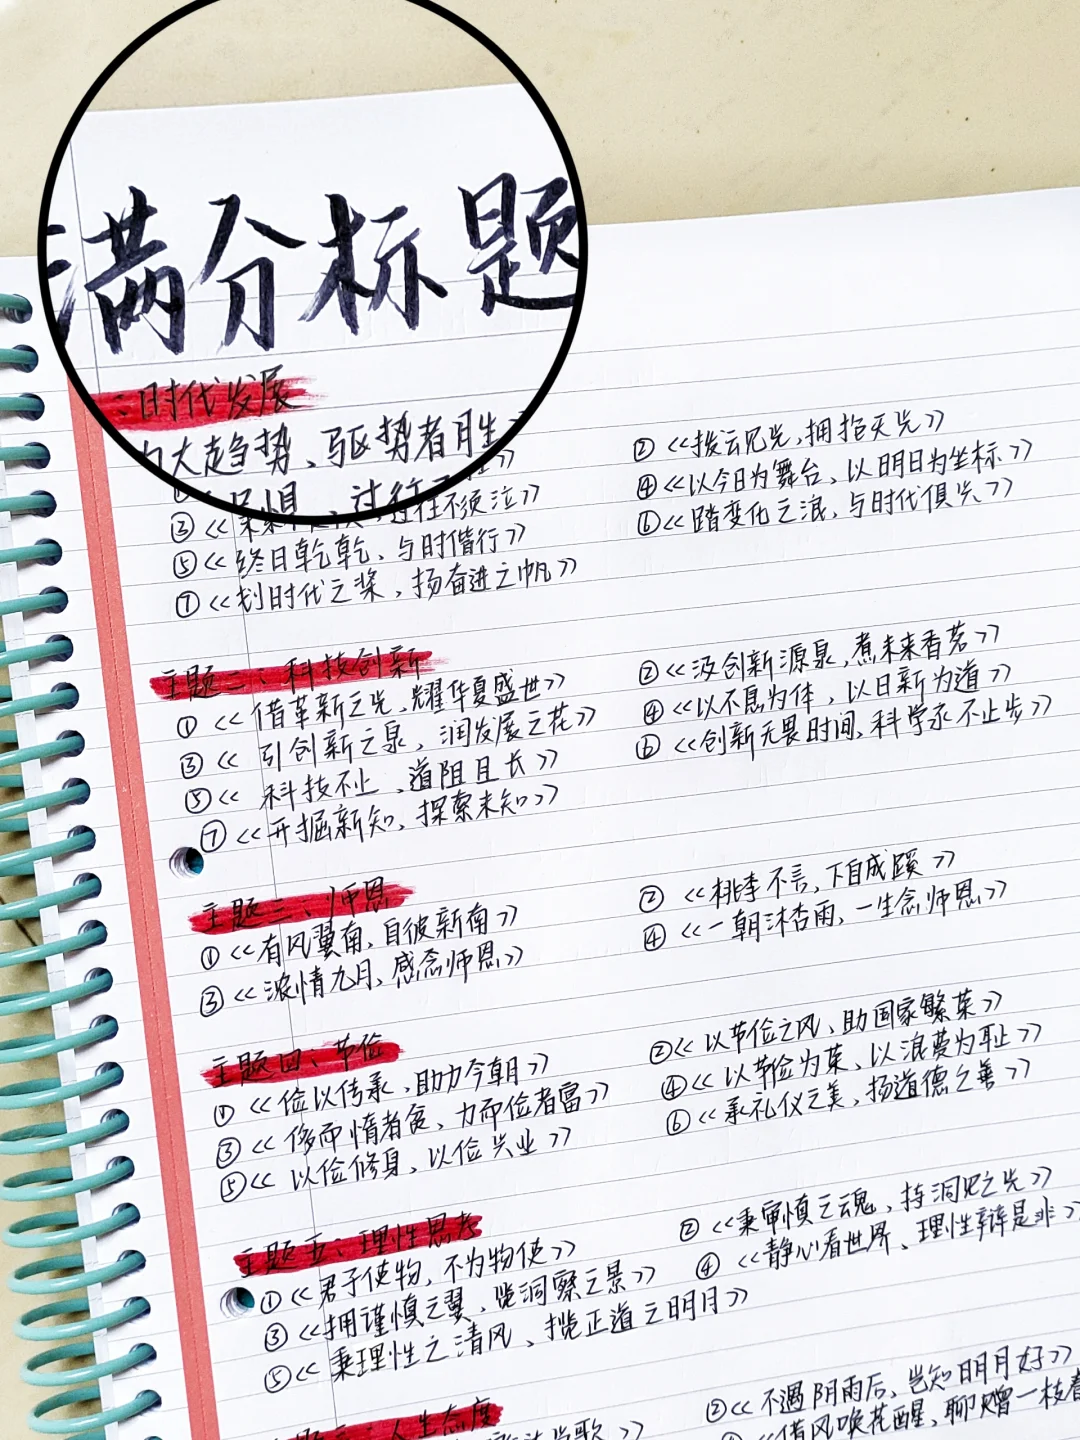 满分标题
：时代发展
大趋势、驭势者胜
② 《拨云见光,拥抱天光》
③ 《 过往不须泣》
④《以今日为舞台，以明日为坐标》
⑤《终日乾乾、与时偕行》
⑥《踏变化之浪，与时代俱先》
⑦《划时代之桨，扬奋进之帆》
主题二：科技创新
①《借革新之光、耀华夏盛世》
②《汲创新源泉,煮未来香茗》
③《引创新之泉，润发展之花》
④《以不息为体，以日新为道》
⑤《科技不止、道阻且长》
⑥《创新无畏时间,科学永不止步》
⑦《开掘新知、探索未知》
主题三：师恩
①《有风翼南,自彼新南》
②《桃李不言,下自成蹊》
③《浓情九月,感念师恩》
④《一朝沐杏雨,一生念师恩》
主题四、节俭
①《俭以传承、助力今朝》
②《以节俭之风、助国家繁荣》
③《侈而惰者贫、力而俭者富》
④《以节俭为荣、以浪费为耻》
⑤《以俭修身、以俭兴业》
⑥《承礼仪之美、扬道德之善》
主题五：理性思考
①《君子使物，不为物使》
②《秉审慎之魂，持洞见之光》
③《拥谨慎之翼、览洞察之景》
④《静心看世界、理性辩是非》
⑤《乘理性之清风、揽正道之明月》
：人生态度
②《不遇阴雨后、岂知明月好》
《借风唤花醒、聊赠一枝春